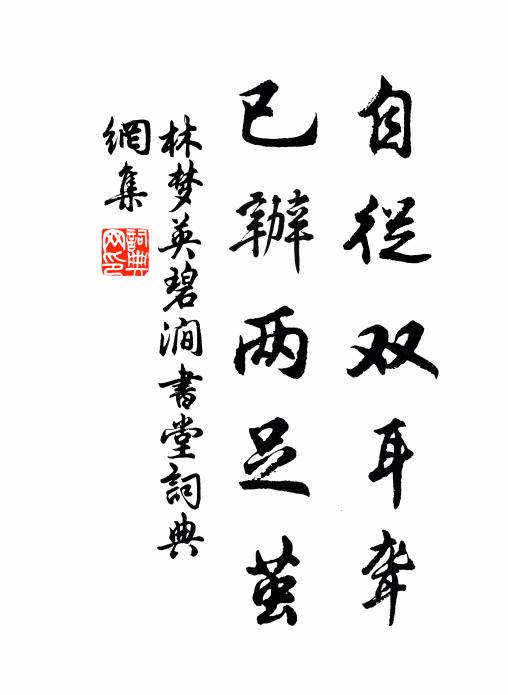 自從双耳聋
已辦两足茧
林梦英碧澗書堂詞典
網集
詞典网印